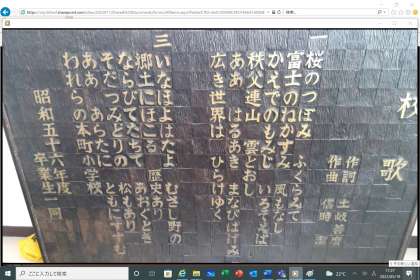 校歌
作詞 土岐善麿
作曲 信時 潔
一
桜のつぼみ ふくらみて
富士のねがすみ 風もなし
かえでのもみじ いろそえば
秩父連山 雲とおし
ああ はるあき まなびはげみ
広き世界は ひらけゆく
三
いなほよはたよ むさし野の
郷土にほこる 歴史あり
ならびてたちて あおぐとき
そだつみどりの 松もあり
ああ あらたに ともにすすむ
われらの本町小学校
昭和五十六年度
卒業生一同
ここに入力して検索
22℃